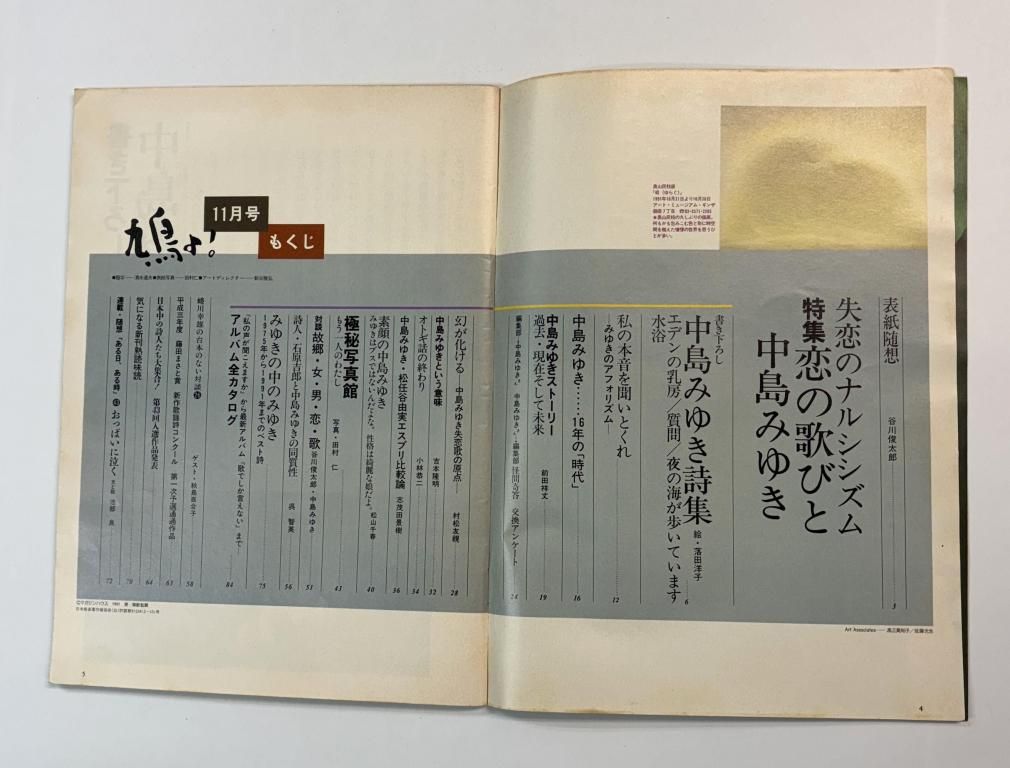 表紙随想 谷川俊太郎 3
失恋のナルシシズム
特集恋の歌びと
中島みゆき
書き下ろし
中島みゆき詩集 絵・落田洋子 6
エデンの乳房／質問／夜の海が歩いています
水浴
私の本音を聞いとくれ 12
みゆきのアフォリズム
中島みゆき……16年の「時代」 16
中島みゆきストーリー 前田祥丈 19
過去・現在そして未来
編集部→中島みゆき 中島みゆき→編集部 怪問奇答 交換アンケート 24
4
鳩よ!
11月号
もくじ
幻が化ける 中島みゆき失恋歌の原点 村松友視 28
中島みゆきという意味 吉本隆明 32
オトギ話の終わり 小林恭二 34
中島みゆき・松任谷由実エスプリ比較論 志茂田景樹 36
素顔の中島みゆき 松山千春 40
みゆきはブスではないんだよな。性格は綺麗な娘だよ。
極秘写真館 写真・田村 仁 43
もう一人のわたし
対談 故郷・女・男・恋・歌 谷川俊太郎・中島みゆき 53
詩人・石原吉郎と中島みゆきの同質性 呉 智英 56
みゆきの中のみゆき 75
1975年から1991年までのベスト詩
「私の声が聞こえますか」から最新アルバム「歌でしか言えない」まで
アルバム全カタログ 84
蜷川幸雄の台本のない対談 ゲスト・秋島百合子 58
平成三年度 藤田まさと賞 新作歌謡詩コンクール 第一次予選通過作品 63
日本中の詩人たち大集合! 第43回入選作品発表 64
気になる新刊熟読味読 70
連載・随想「ある日、ある時」 おっぱいに泣く 72
5